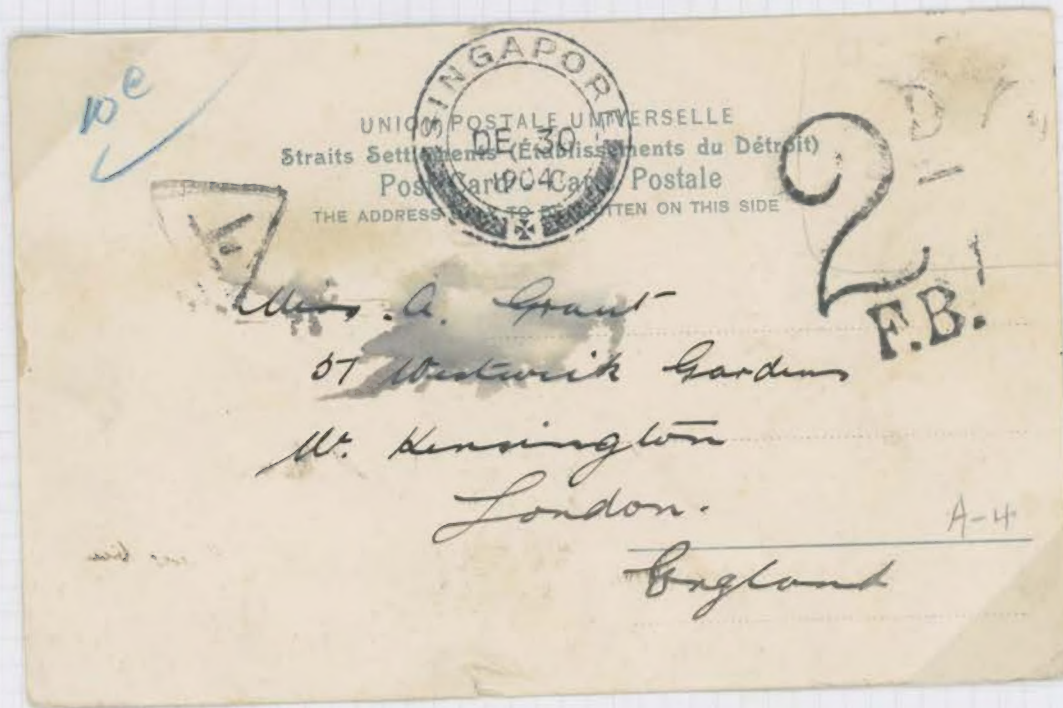 10 c
SINGAPORE
DE 30
1904
UNION POSTALE UNIVERSELLE
Straits Settlements (Établissements du Détroit)
Post Card - Carte Postale
THE ADDRESS ONLY TO BE WRITTEN ON THIS SIDE
T
2 D
F.B.
Miss. A. Grant
57 Westwick Gardens
W. Kensington
London.
A-4
England